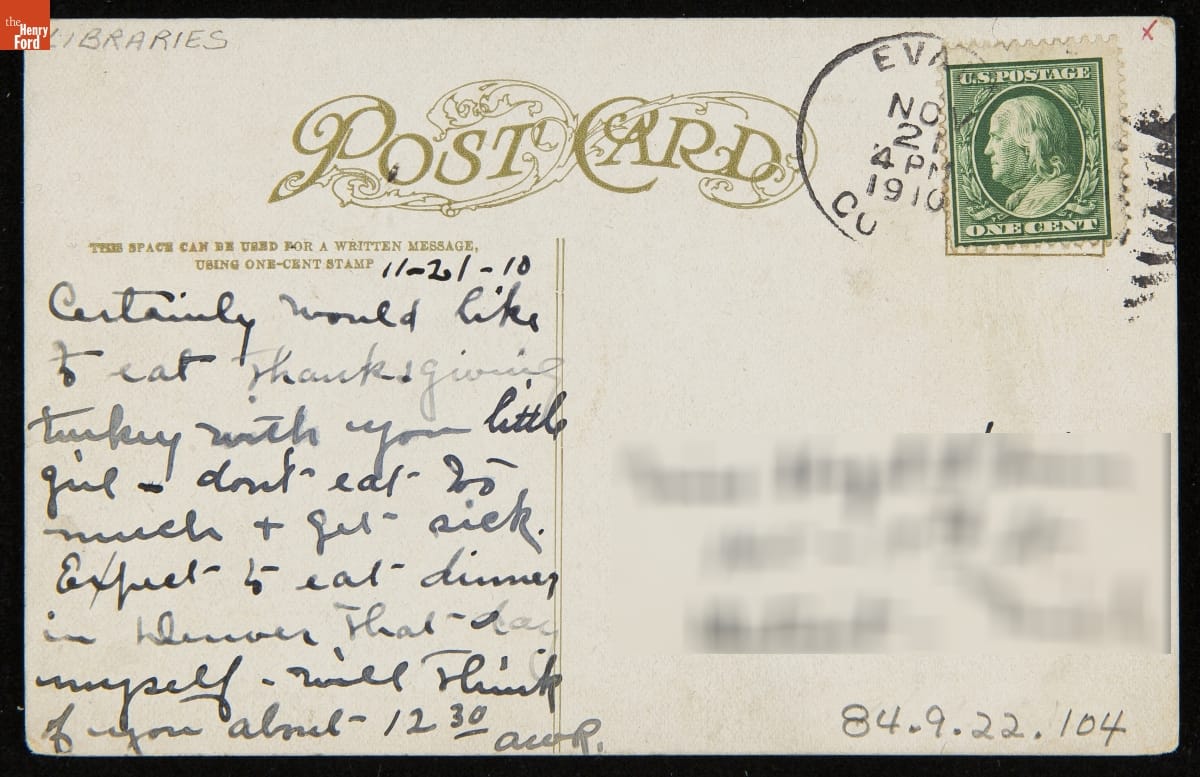 the
Henry
Ford
LIBRARIES
x
POST CARD
EVA
NOV
21
4 PM
1910
CO
U.S. POSTAGE
ONE CENT
THIS SPACE CAN BE USED FOR A WRITTEN MESSAGE,
USING ONE-CENT STAMP
11-21-10
Certainly would like
to eat Thanksgiving
turkey with you little
girl - don't eat too
much + get sick.
Expect to eat dinner
in Denver that day
myself - will think
of you about 12 30
84.9.22.104